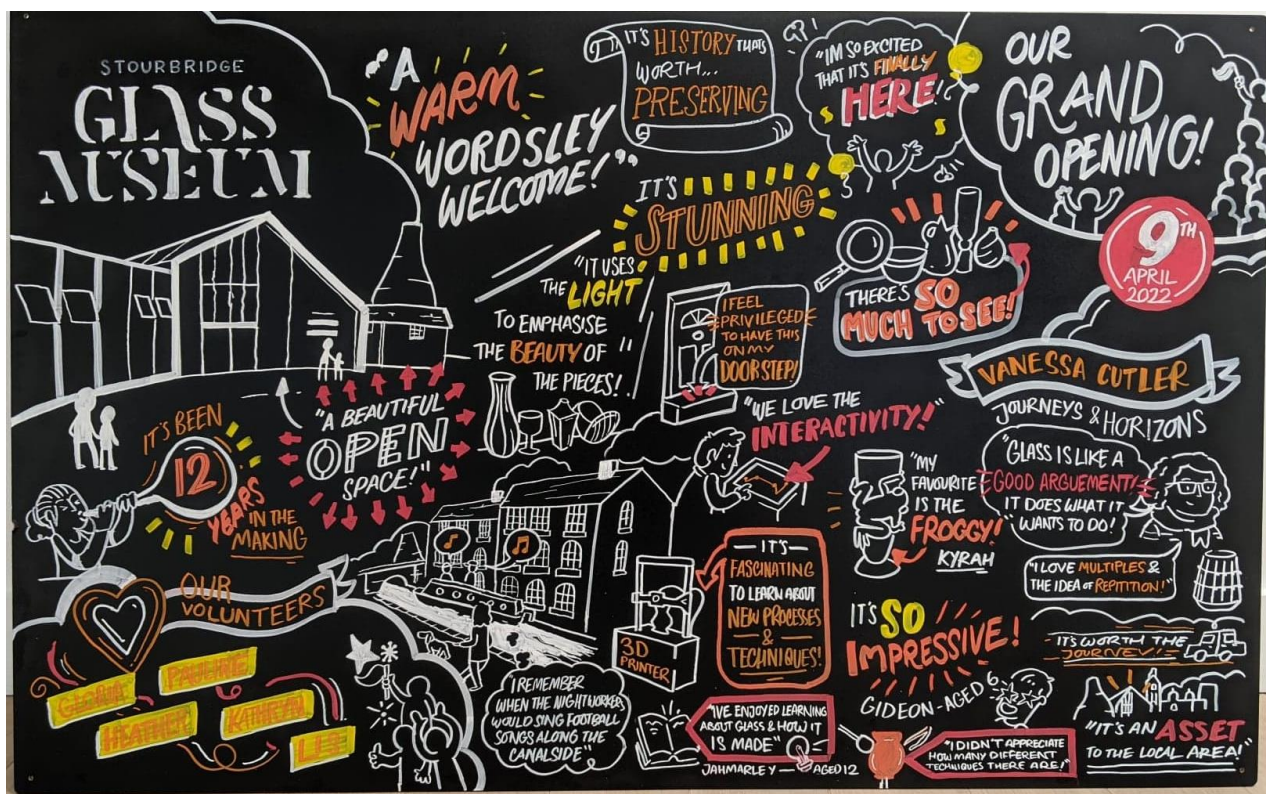 STOURBRIDGE
GLASS
MUSEUM
"A
WARM
WORDSLEY
WELCOME!"
IT'S HISTORY THATS
WORTH...
PRESERVING
"IM SO EXCITED
THAT IT'S FINALLY
HERE!"
OUR
GRAND
OPENING!
9TH
APRIL
2022
IT'S
STUNNING
"IT USES
THE LIGHT
TO EMPHASISE
THE BEAUTY OF
THE PIECES!"
I FEEL
PRIVILEGED
TO HAVE THIS
ON MY
DOORSTEP!
THERE'S SO
MUCH TO SEE!
VANESSA CUTLER
JOURNEYS & HORIZONS
"GLASS IS LIKE A
GOOD ARGUEMENT!
IT DOES WHAT IT
WANTS TO DO!"
"I LOVE MULTIPLES &
THE IDEA OF REPTITION!"
IT'S BEEN
12
YEARS
IN THE
MAKING
"A BEAUTIFUL
OPEN
SPACE!"
"WE LOVE THE
INTERACTIVITY!"
"MY
FAVOURITE
IS THE
FROGGY!
KYRAH
OUR
VOLUNTEERS
GLORIA
PAULINE
HEATHER
KATHRYN
LES
"I REMEMBER
WHEN THE NIGHTWORKERS
WOULD SING FOOTBALL
SONGS ALONG THE
CANALSIDE"
3D
PRINTER
IT'S
FASCINATING
TO LEARN ABOUT
NEW PROCESSES
&
TECHNIQUES!
"I'VE ENJOYED LEARNING
ABOUT GLASS & HOW IT
IS MADE"
JAHMARLEY — AGED 12
IT'S SO
IMPRESSIVE!
GIDEON - AGED 6
"I DIDN'T APPRECIATE
HOW MANY DIFFERENT
TECHNIQUES THERE ARE!"
IT'S WORTH THE
JOURNEY!
"IT'S AN ASSET
TO THE LOCAL AREA!"